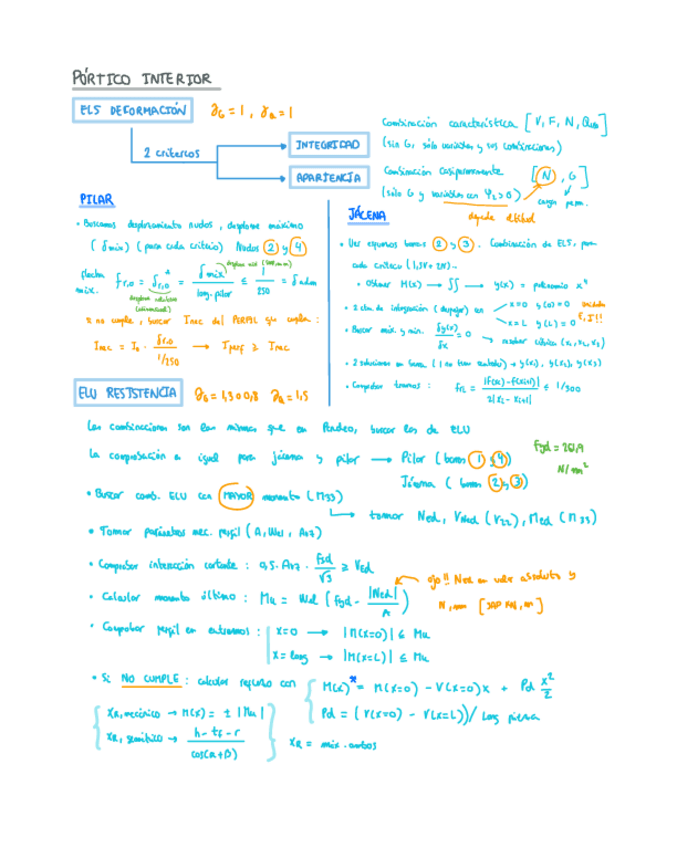 PÓRTICO INTERIOR
ELS DEFORMACIÓN
γG = 1, γQ = 1
2 criterios
INTEGRIDAD
APARIENCIA
Combinación característica [V, F, N,
(sin G, sólo variables y sus combinaciones)
Combinación casipermanente [N, G]
(sólo G y variables con Ψ2 > 0)
depende altitud
PILAR
• Buscamos desplazamiento nudos, desplome máximo
(δmáx) (para cada criterio) Nudos 2 y 4
flecha máx. fr,0 = δr,0 = δmáx / long. pilar ≤ 1/250 = δadm
Si no cumple, buscar Inec del PERFIL que cumpla:
Inec = I0 · δr,0 / 1/250 → Iperf ≥ Inec
JÁCENA
• Ver esfuerzos barras 2 y 3. Combinación de ELS, para
cada criterio (1,3V + 2N)
• Obtener M(x) → ∫∫ → y(x) = polinomio x⁴
• 2 ctes. de integración (despejar) en x=0 y(0)=0
x=L y(L)=0
• Buscar máx. y mín. δy(x)/δx = 0 → resolver cúbica (x1, x2, x3)
• 2 soluciones en barra (1 no tiene sentido) → y(x1), y(x2), y(x3)
• Comprobar tramos: frL = |f(xi) - f(xi+1)| / 2|xi - xi+1| ≤ 1/300
ELU RESISTENCIA
γG = 1,3 o 0,8 γQ = 1,5
Las combinaciones son las mismas que en Pandeo, buscar las de ELU
La comprobación es igual para jácena y pilar → Pilar (barras 1 y 4)
Jácena (barras 2 y 3)
fyd = 261,9
N/mm²
• Buscar comb. ELU con MAYOR momento (M33)
→ tomar NEd, VEd (V22), MEd (M33)
• Tomar parámetros mec. perfil (A, Wel, Avz)
• Comprobar interacción cortante: 0,5 · Avz · fyd/√3 ≥ VEd
• Calcular momento último: Mu = Wel (fyd - |NEd|/A)
ojo!! NEd en valor absoluto y
N, mm [SAP KN, m]
• Comprobar perfil en extremos: x=0 → |M(x=0)| ≤ Mu
x=long → |M(x=L)| ≤ Mu
• Si NO CUMPLE: calcular refuerzo con M(x)* = M(x=0) - V(x=0)x + Pd x²/2
Pd = (V(x=0) - V(x=L)) / Long pieza
xR, mecánico → M(x) = ± |Mu|
xR, geométrico → h - tf - r / cos(α+β)
xR = máx. ambos